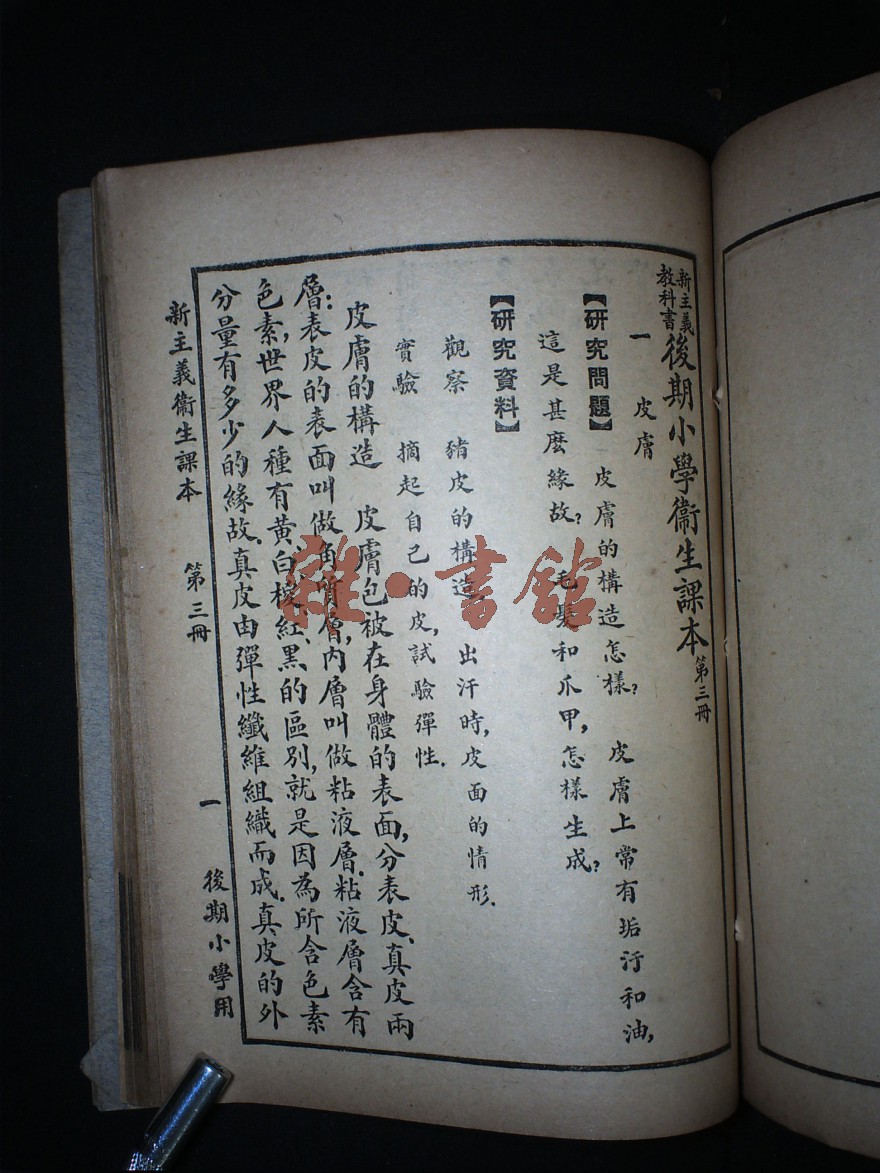 新主義教科書 後期小學衞生課本 第三冊
一 皮膚
【研究問題】 皮膚的構造怎樣？ 皮膚上常有垢汙和油，
這是甚麽緣故？ 毛髮和爪甲，怎樣生成？
【研究資料】
觀察 豬皮的構造 出汗時，皮面的情形．
實驗 摘起自己的皮，試驗彈性．
皮膚的構造 皮膚包被在身體的表面，分表皮、真皮兩
層：表皮的表面叫做角質層，內層叫做粘液層．粘液層含有
色素，世界人種有黃、白、椶、紅、黑的區別，就是因為所含色素
分量有多少的緣故．真皮由彈性纖維組織而成．真皮的外
新主義衞生課本 第三冊 一 後期小學用
雜·書館